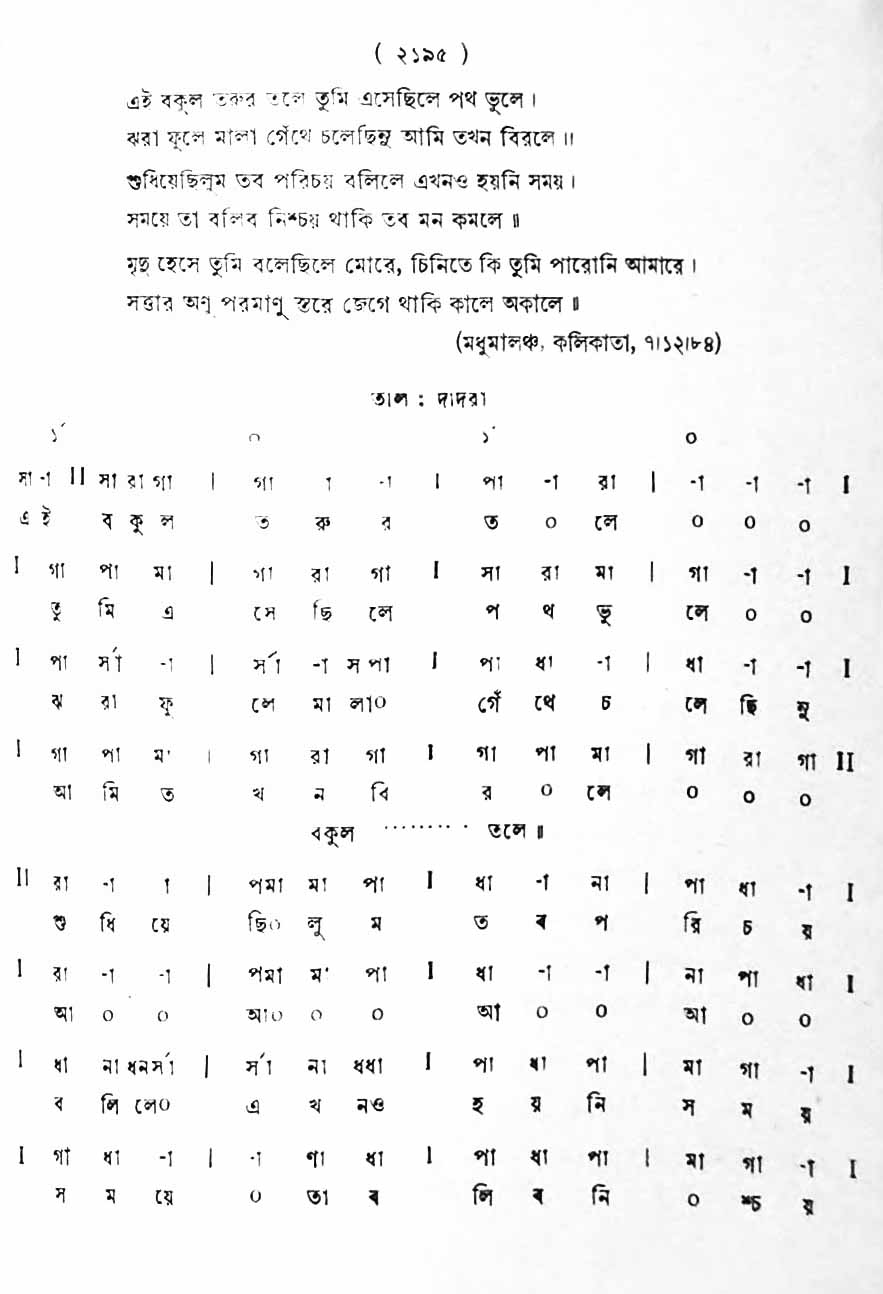 ( ২১৯৫ )
এই বকুল তরুর তলে তুমি এসেছিলে পথ ভুলে।
ঝরা ফুলে মালা গেঁথে চলেছিনু আমি তখন বিরলে॥
শুধিয়েছিলুম তব পরিচয় বলিলে এখনও হয়নি সময়।
সময়ে তা বলিব নিশ্চয় থাকি তব মন কমলে॥
মৃদু হেসে তুমি বলেছিলে মোরে, চিনিতে কি তুমি পারোনি আমারে।
সত্তার অণু পরমাণু স্তরে জেগে থাকি কালে অকালে॥
(মধুমালঞ্চ, কলিকাতা, ৭।১২।৮৪)
তাল : দাদরা
১´ ০ ১´ ০
সা -া II সা রা গা | গা া -া I পা -া রা | -া -া -া I
এ ই ব কু ল ত রু র ত ০ লে ০ ০ ০
I গা পা মা | গা রা গা I সা রা মা | গা -া -া I
তু মি এ সে ছি লে প থ ভু লে ০ ০
I পা র্সা -া | র্সা -া স পা I পা ধা -া | ধা -া -া I
ঝ রা ফু লে মা লা০ গেঁ থে চ লে ছি নু
I গা পা ম' | গা রা গা I গা পা মা | গা রা গা II
আ মি ত খ ন বি র ০ লে ০ ০ ০
বকুল ········ তলে॥
II রা -া া | পমা মা পা I ধা -া না | পা ধা -া I
শু ধি য়ে ছি০ লু ম ত ব প রি চ য়
I রা -া -া | পমা ম' পা I ধা -া -া | না পা ধা I
আ ০ ০ আ০ ০ ০ আ ০ ০ আ ০ ০
I ধা না ধনর্সা | র্সা না ধধা I পা ধা পা | মা গা -া I
ব লি লে০ এ খ নও হ য় নি স ম য়
I গা ধা -া | -া ণা ধা I পা ধা পা | মা গা -া I
স ম য়ে ০ তা ব লি ব নি ০ শ্চ য়